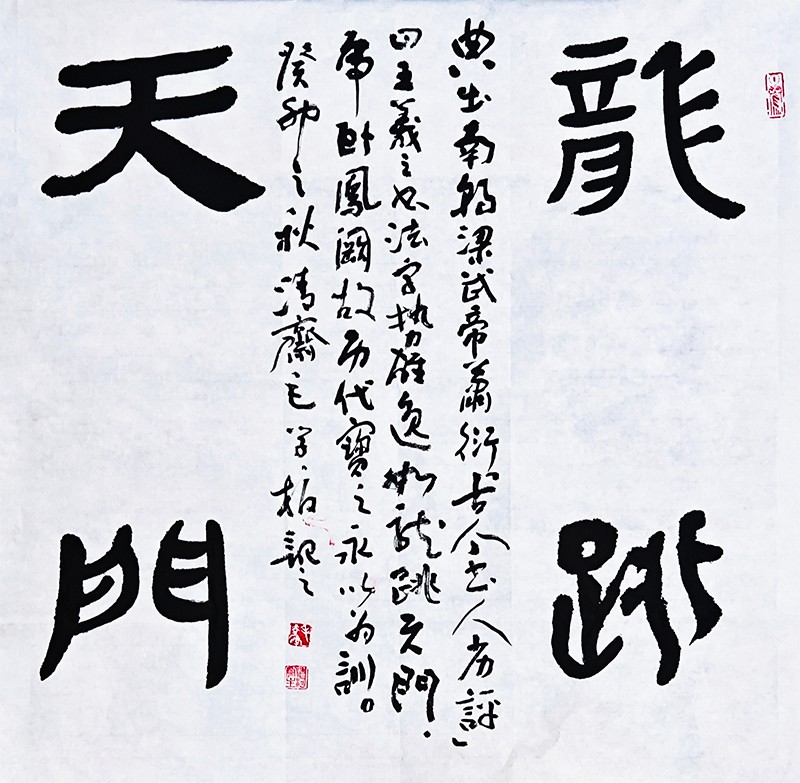 龍跳
天門
典出南朝梁武帝蕭衍「古今書人劣評」
曰王羲之书法字势雄逸如龍跳天門．
虎卧鳳闕故历代寶之永以为訓。
癸卯之秋清齋毛学柏記之